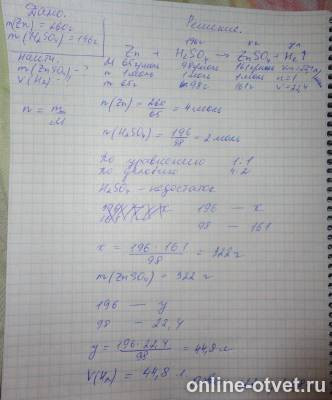 Дано:
m(Zn) = 260г
m(H₂SO₄) = 196г
Найти:
m(ZnSO₄) - ?
V(H₂) - ?
n = m/M
Решение.
196г x г y л
Zn + H₂SO₄ → ZnSO₄ + H₂↑
M 65г/моль 98г/моль 161г/моль
n 1моль 1моль 1моль n=1
m 65г 98г 161г V=22,4
n(Zn) = 260/65 = 4моль
n(H₂SO₄) = 196/98 = 2моль
По уравнению 1:1
По условию 4:2
H₂SO₄ - недостаток
196 — x
98 — 161
x = 196·161/98 = 322г
m(ZnSO₄) = 322г
196 — y
98 — 22,4
y = 196·22,4/98 = 44,8л
V(H₂) = 44,8 л
online-otvet.ru